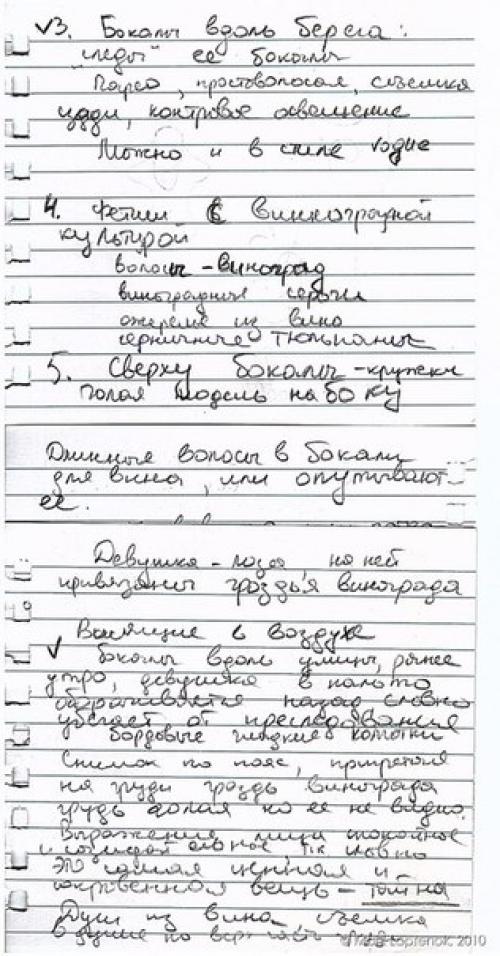 √3. Бокалы вдоль берега:
"следы" ее бокалы
Парео, простоволосая, съемка
сзади, контровое освещение
Можно и в стиле ню
4. Фетиш с винноградной
культурой
волосы - виноград
виноградные серьги
ожерелье из вино
тюльпаны
5. Сверху бокалы - кружеки
голая модель на боку
Длинные волосы в бокалы
для вина, или опутывают
ее.
Девушка - лоза, на ней
привязаны грозд'я винограда
Висящие в воздухе
√ бокалы вдоль улицы, раннее
утро, девушка в пальто
оборачивается назад словно
убегает от преследования
бордовые гладкие колготки
Снимок по пояс,
на груди гроздь винограда
грудь голая но ее не видно.
Выражение лица спокойное
и т.к словно
это самая ценная и
сокровенная вещь - тайна
Душ из вина съемка
в душе по
© 2010